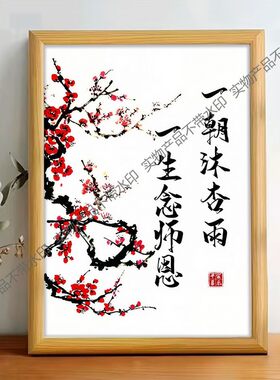 一朝沐杏雨
一生念师恩
实物产品不带水印
实物产品不带水印
实物产品不带水印
实物产品不带水印